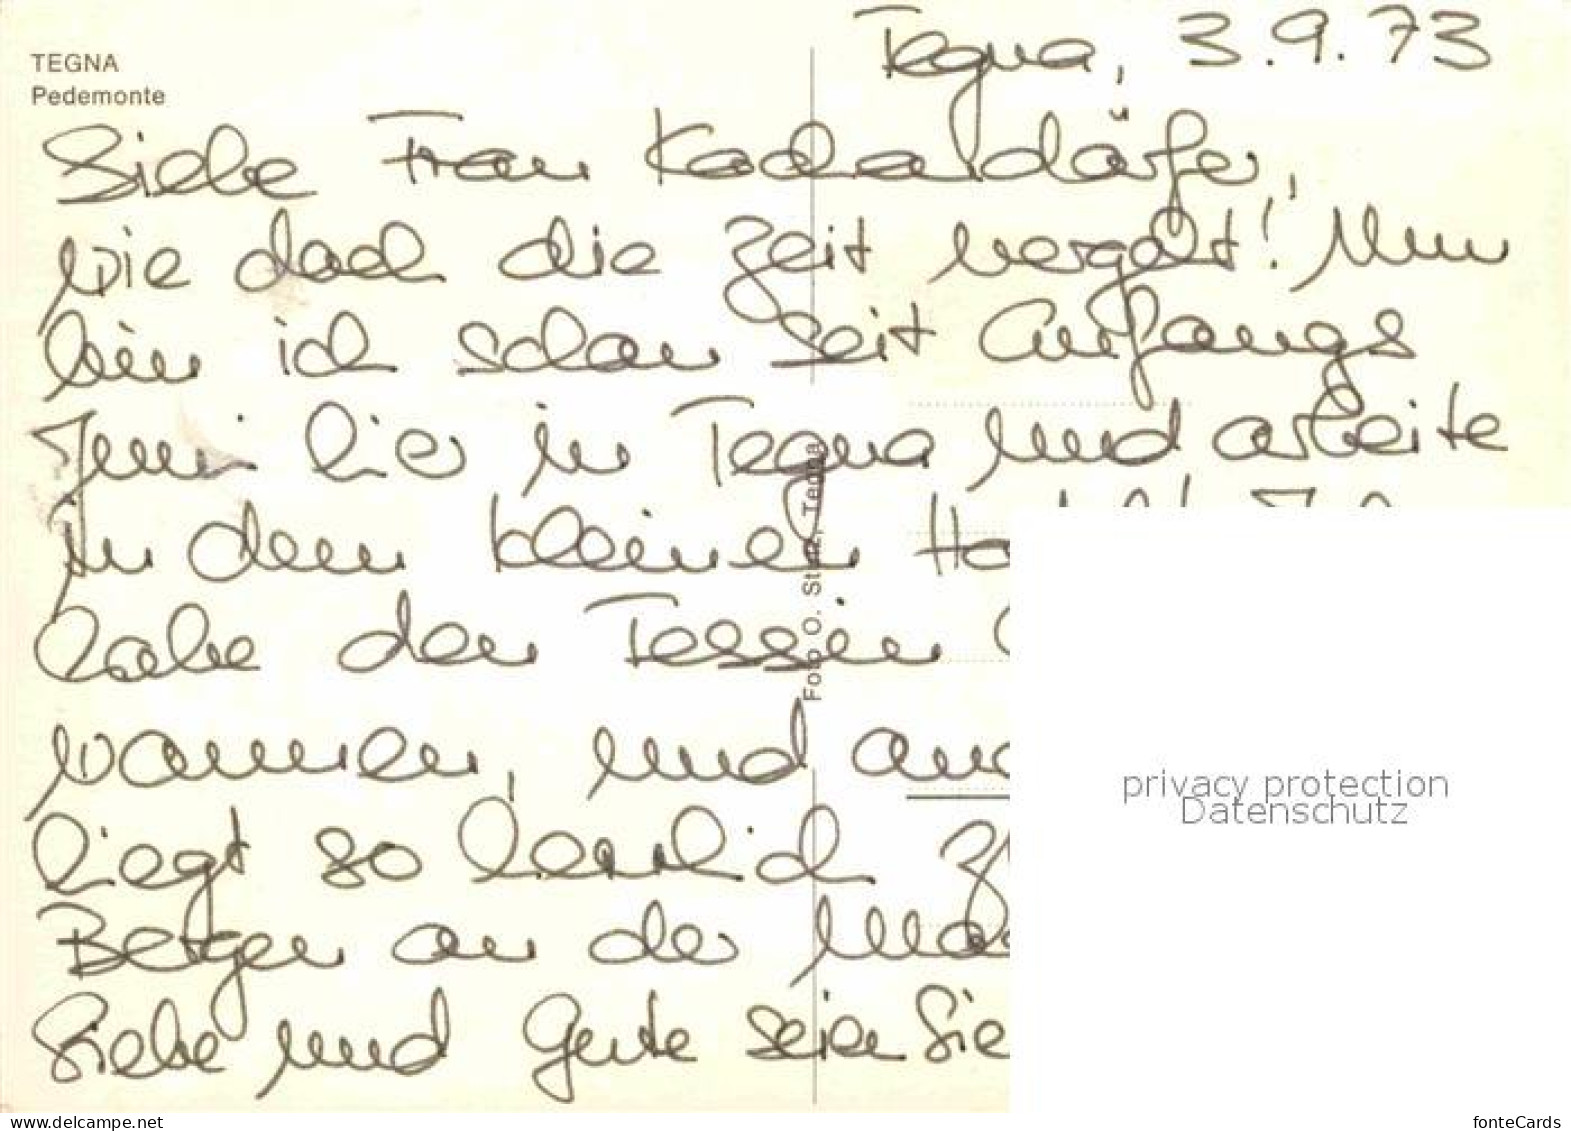 TEGNA
Pedemonte
Tegna, 3.9.73
Liebe Frau
wie doch die Zeit vergeht! Nun
bin ich schon seit Anfangs
Juni hier in Tegna und arbeite
in dem kleinen
habe den Tessin
wonnen, und
liegt so herrlich
Bergen an der
Liebe und Gute seien Sie
Foto O. Stutz, Tegna
privacy protection
Datenschutz
www.delcampe.net
fonteCards